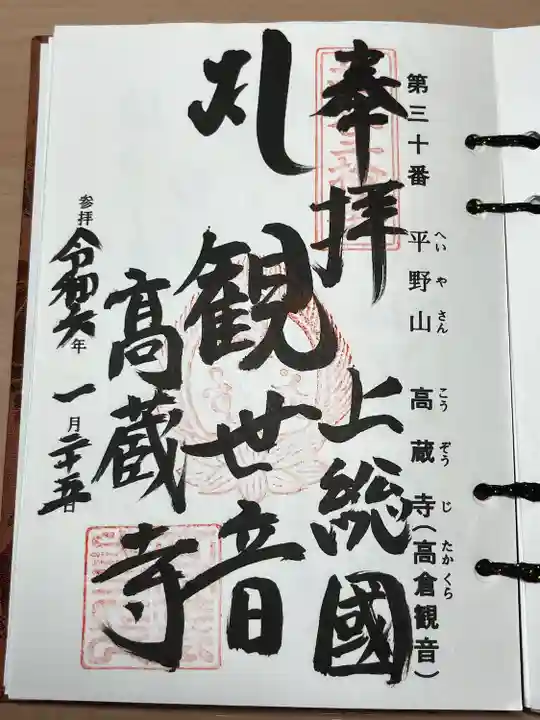 第三十番 平野山 高蔵寺(高倉観音)
へいやさん こうぞうじ たかくら
奉拝 上総國
観世音
高蔵寺
参拝 令和六年 一月二十五日